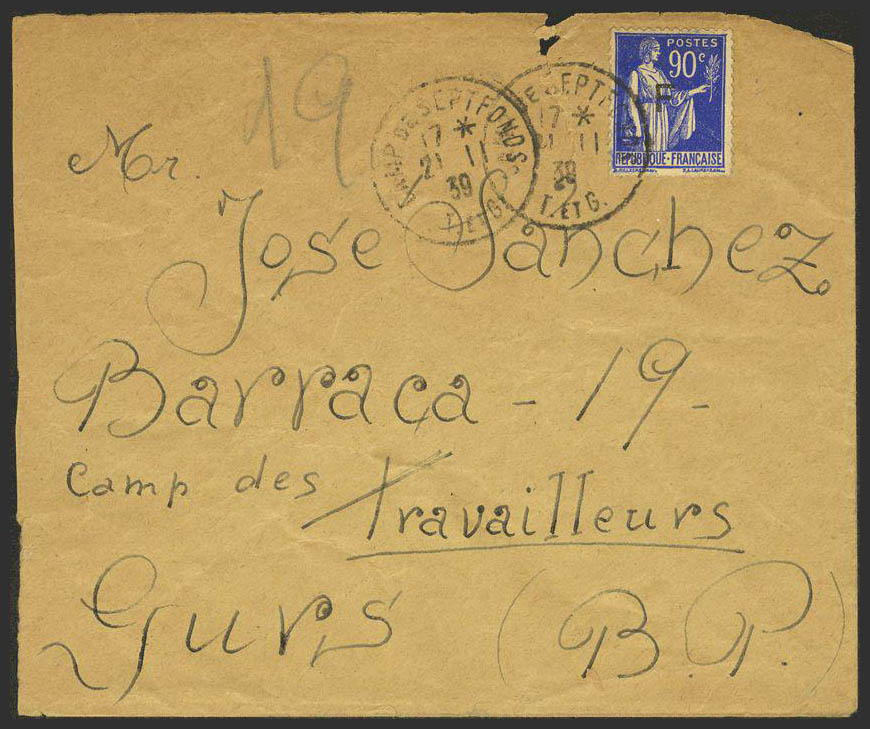 POSTES
90c
F
REPUBLIQUE-FRANÇAISE
CAMP DE SEPTFONDS
17 *
21 11
39
T. ET G.
DE SEPTF
17 *
21 11
39
T. ET G.
19
Mr.
Jose Sanchez
Barraca - 19 -
Camp des Travailleurs
Gurs (B.P.)